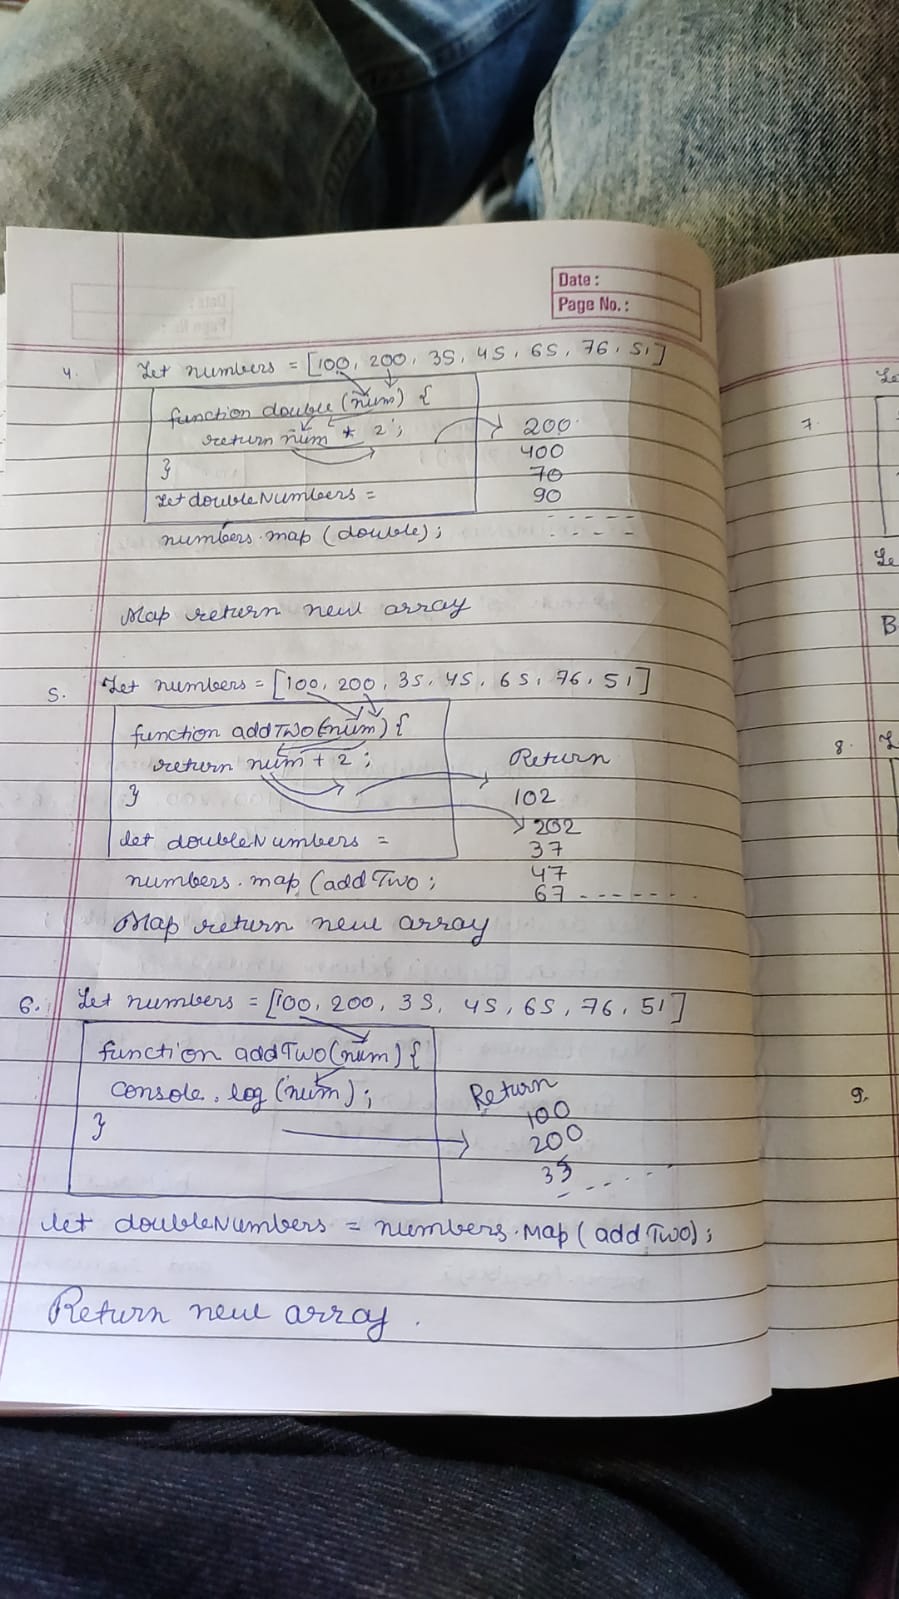 Date :
Page No. :
4. Let numbers = [100, 200, 35, 45, 65, 76, 51]
function double (num) {
return num * 2 ;
}
Let doubleNumbers =
numbers.map (double) ;
200
400
70
90
Map return new array
5. Let numbers = [100, 200, 35, 45, 65, 76, 51]
function addTwo(num) {
return num + 2 ;
}
let doubleNumbers =
numbers. map (addTwo ;
Return
102
202
37
47
67 - - - - - -
Map return new array
6. Let numbers = [100, 200, 35, 45, 65, 76, 51]
function addTwo(num) {
console. log (num) ;
}
Return
100
200
35
let doubleNumbers = numbers.map ( addTwo) ;
Return new array .
7.
Le
Le
B
8.
9.